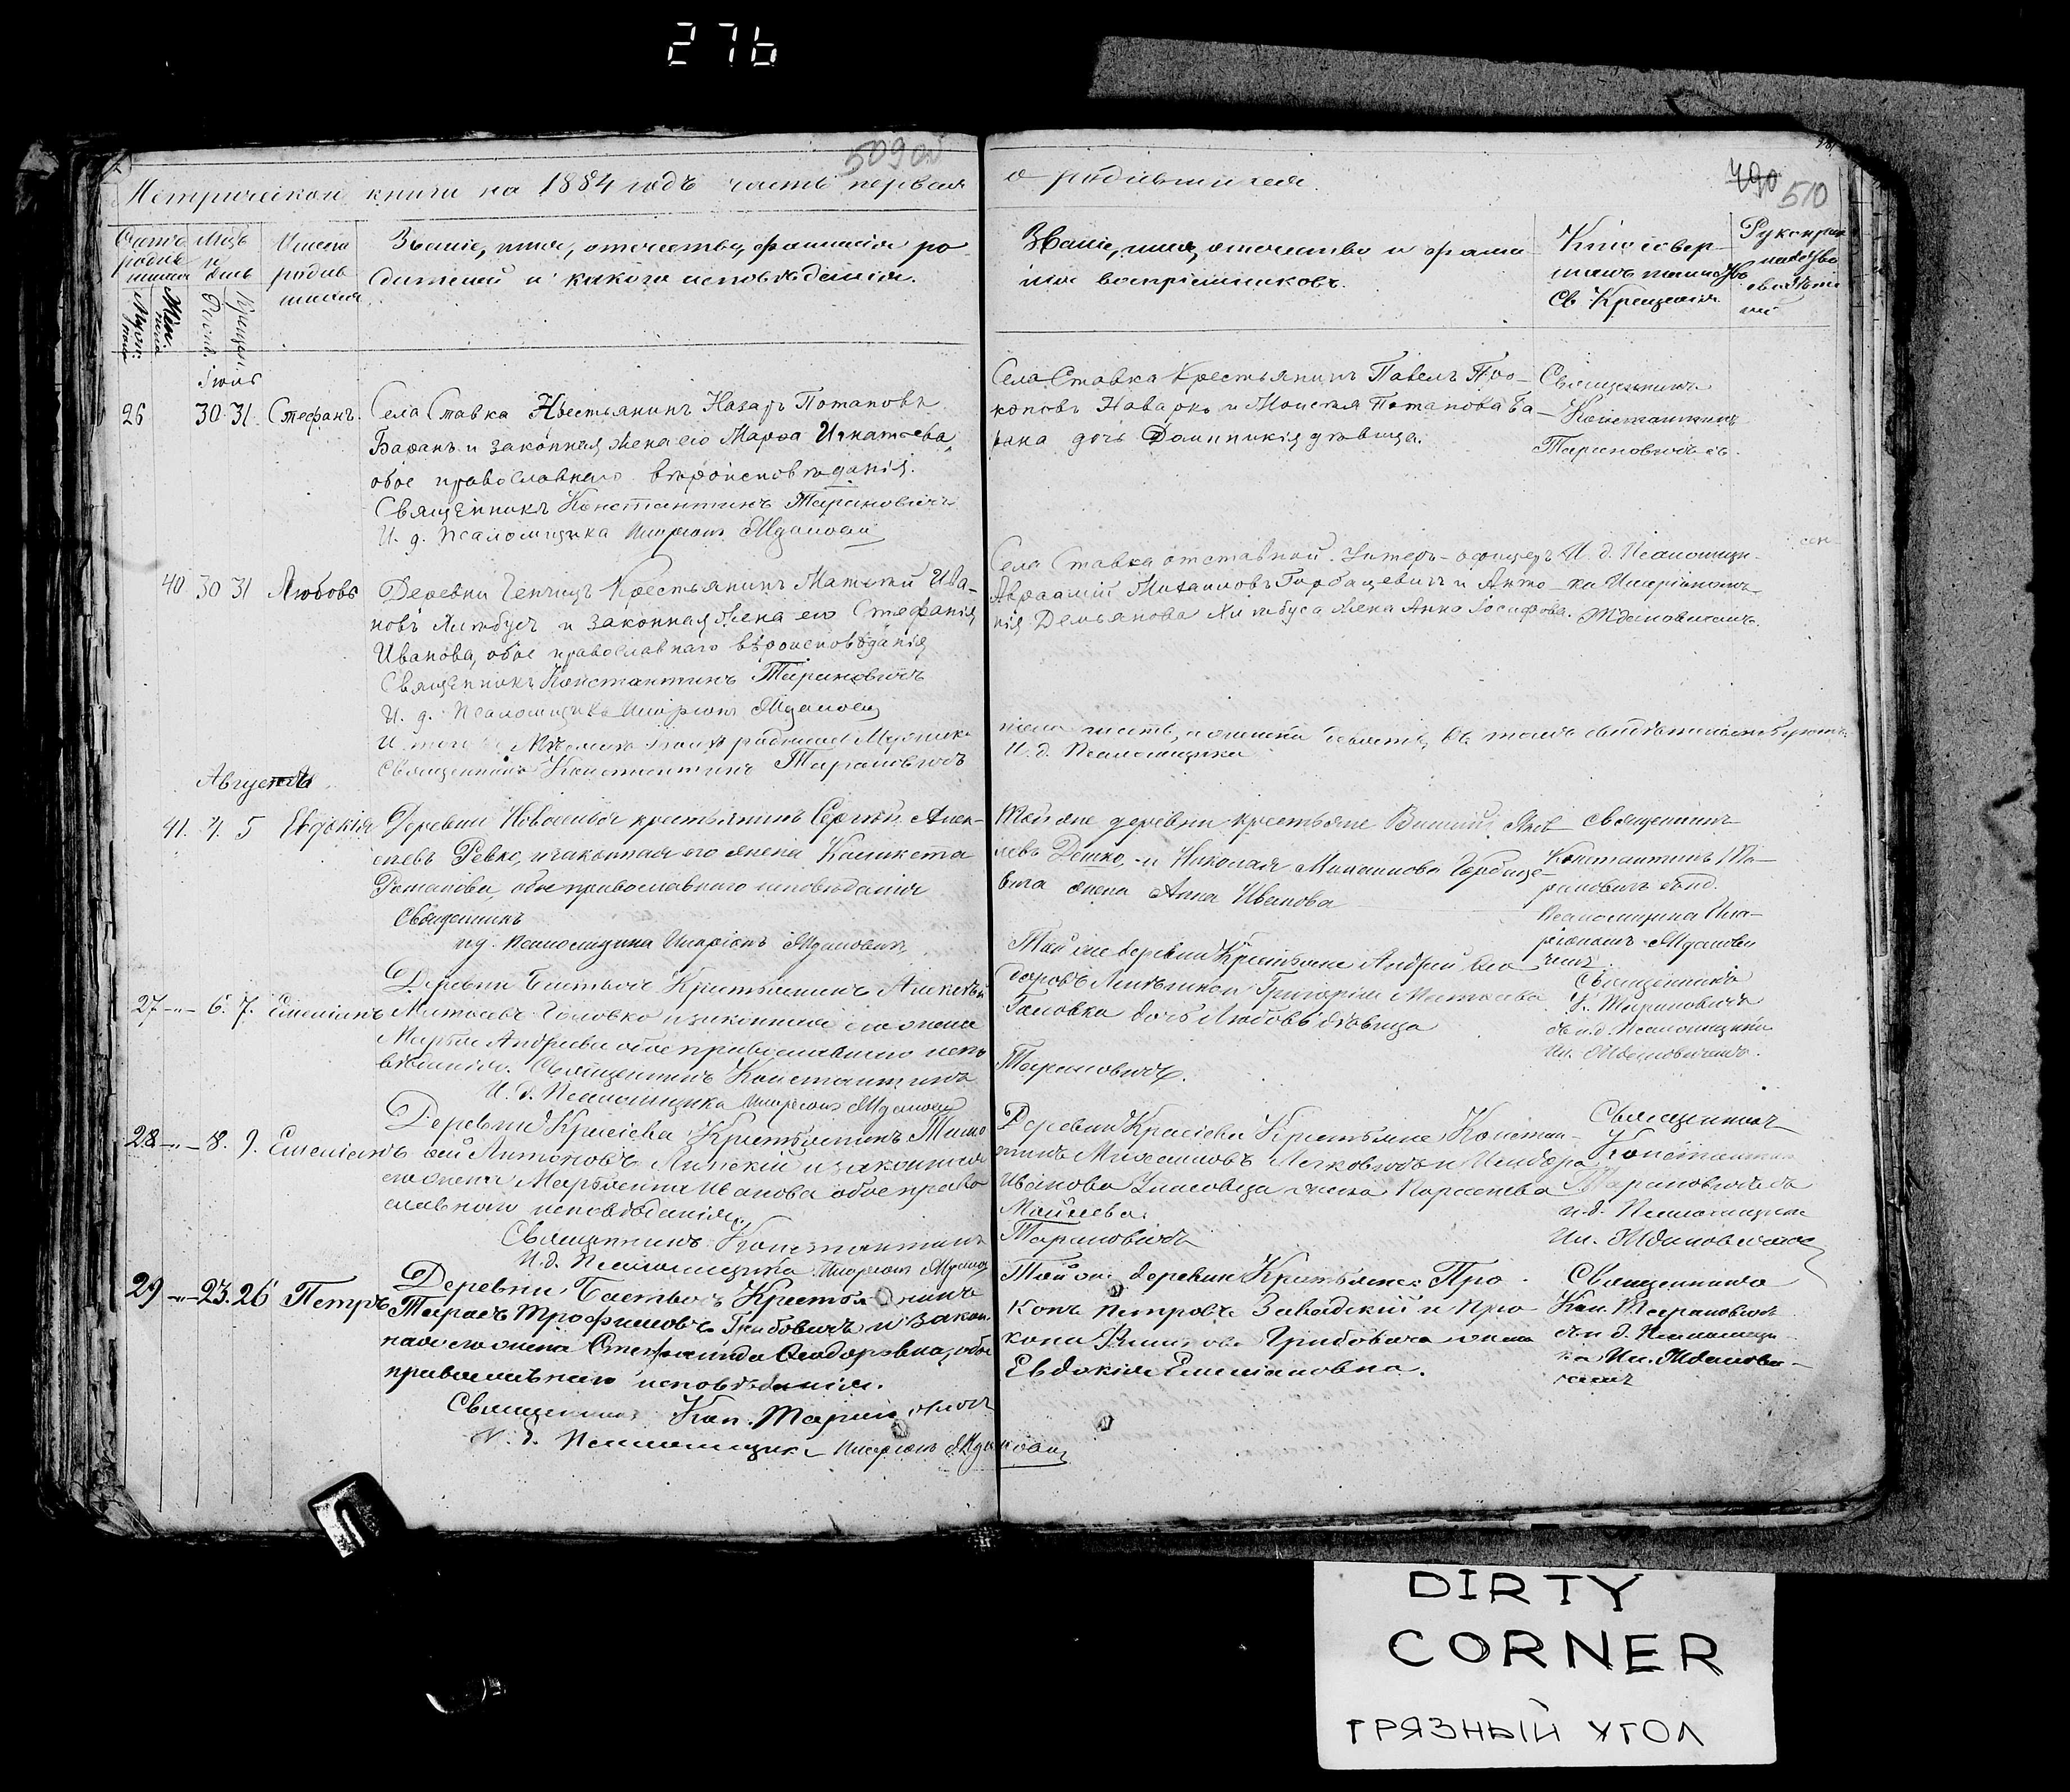 276
509 об
Метрической книги на 1884 годъ часть первая
о родившихся.
490 510
Счетъ родив шихся
Мцъ и день
Имена родив шихся
Званіе, имя, отчество, фамилія ро-
дителей и какого исповѣданія.
Званіе, имя, отчество и фами
лія воспріемниковъ.
Кто совер-
шалъ таинство
Св Крещенія
Рукопри
кладство
свидѣте
лей
Муж. пола
Жен. пола
Рожд.
Крещен.
Іюль
26 30 31 Стефанъ.
Села Ставка Крестьянинъ Назаръ Потаповъ
Баранъ и законная жена его Марѳа Игнатьева,
обое православнаго вѣроисповѣданія.
Священникъ Константинъ Тарановичъ
И. д. Псаломщика Иларіонъ Ждановичъ
Села Ставка Крестьянинъ Павелъ Про-
коповъ и Потапова Ба-
рана дочь Домникія дѣвица.
Священникъ
Константинъ
Тарановичъ съ.
40 30 31 Любовь
Деревни Крестьянинъ Матѳей Ива-
новъ и законная жена его Стефанія
Иванова, обое православнаго вѣроисповѣданія
Священникъ Константинъ Тарановичъ
И. д. Псаломщика Иларіонъ Ждановичъ
Села Ставка отставной Унтеръ-офицеръ
Авраамій Михаиловъ Горбацевичъ и Анто-
нія Демьянова жена Анна Іосифова.
И. д. Псаломщи-
ка Иларіономъ
Ждановичемъ.
Итого въ Іюлѣ родилось Мужска
Священникъ Константинъ Тарановичъ
пола шесть, женска девять, въ томъ свидѣтельствуютъ
И. д. Псаломщика
Августъ
41. 4. 5 Евдокія
Деревни крестьянинъ Сергѣй Алек-
сѣевъ Ревко, и законная его жена
Романова, обое православнаго исповѣданія
Священникъ
и д. Псаломщика Иларіонъ Ждановичъ
Той же деревни крестьяне Василій Яков-
левъ Дешко, и Николая Михаилова Горбаце-
вича жена Анна Иванова
Священникъ
Константинъ Та-
рановичъ съ и д.
Псаломщика Ила-
ріономъ Жданови
чемъ.
27 -"- 6. 7. Емеліанъ
Деревни Бастычъ Крестьянинъ Алексѣй
Матѳеевъ Головко и законная его жена
Марья Андреева обое православнаго испо
вѣданія. Священникъ Константинъ
И. д. Псаломщика Иларіонъ Ждановичъ
Той же деревни Крестьяне Андрей
Григорія Матѳеева
Головка дочь Любовь дѣвица
Тарановичъ.
Священникъ
К. Тарановичъ
съ и.д. Псаломщика
Ил. Ждановичемъ.
28 -"- 8. 9. Емеліанъ
Деревни Красіева Крестьянинъ Тимо
ѳей Антоновъ Липскій и законная
его жена Марьянна Иванова обое право
славнаго исповѣданія.
Священникъ Константинъ
И. д. Псаломщика Иларіонъ Ждановичъ
Деревни Красіева Крестьяне Констан-
тинъ Михаиловъ и Исидора
Иванова жена Параскева
Моисеева.
Тарановичъ
Священникъ
Константинъ
Тарановичъ съ
и.д. Псаломщика
Ил. Ждановичемъ
29 -"- 23. 26 Петръ
Деревни Бастычъ Крестьянинъ
Тарасъ Трофимовъ Грибовичъ и закон
ная его жена Стефанида Ѳеодоровна, обое
православнаго исповѣданія.
Священникъ Кон. Тарановичъ
И. д. Псаломщика Иларіонъ Ждановичъ
Той же деревни Крестьяне: Про
копъ Петровъ Завадскій и Про
копа Грибовича жена
Евдокія Емеліановна.
Священникъ
Кон. Тарановичъ
съ и д. Псаломщи
ка Ил. Жданови-
чемъ
DIRTY
CORNER
ГРЯЗНЫЙ УГОЛ